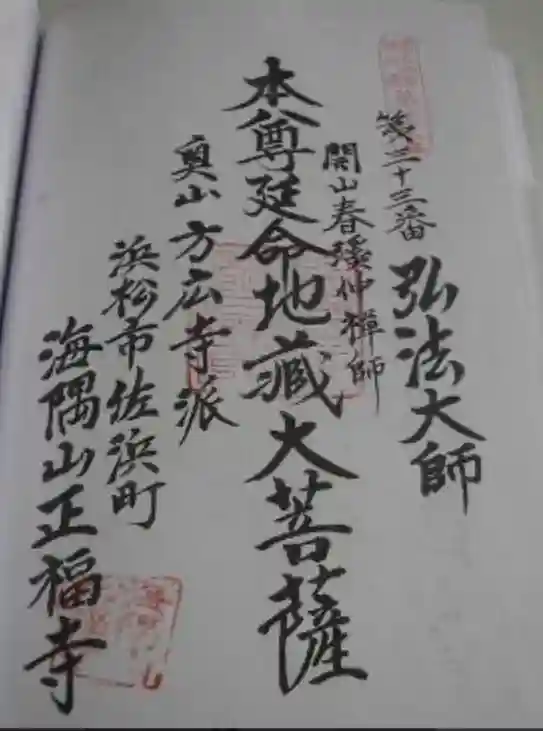 第三十三番
弘法大師
開山春瑤仲禅師
本尊延命地蔵大菩薩
奥山方広寺派
浜松市佐浜町
海隅山正福寺